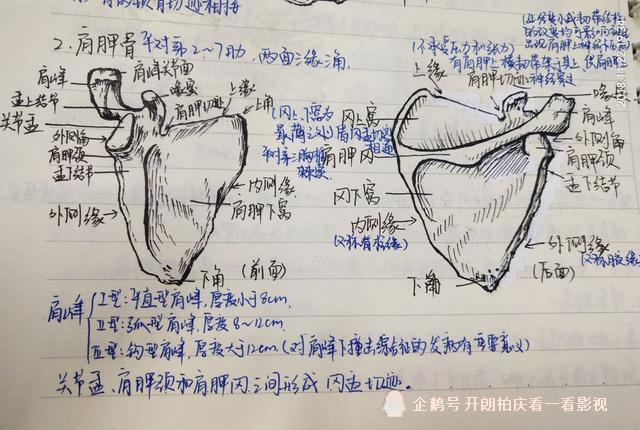 2.肩胛骨 平对第2~7肋,两面三缘三角.
肩峰
肩峰关节面
喙突
肩胛切迹
上缘
上角
盂上结节
关节盂
外侧角
肩胛颈
盂下结节
外侧缘
内侧缘
肩胛下窝
下角
(前面)
上缘
肩胛切迹
喙突
肩峰
外侧角
肩胛颈
盂下结节
冈上窝
肩胛冈
冈下窝
内侧缘
(又称脊柱缘)
外侧缘
(又称腋缘)
下角
(后面)
肩峰
I型:平直型肩峰,厚度小于8cm.
II型:弧型肩峰,厚度8~12cm.
III型:钩型肩峰,厚度大于12cm.(对肩峰下撞击综合征的发病有重要意义)
关节盂、肩胛颈和肩胛冈之间形成 冈盂切迹.
企鹅号 开朗柏庆看一看影视